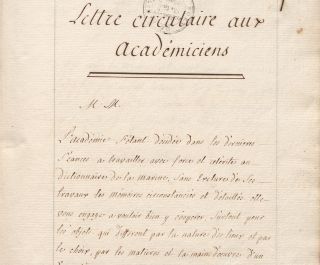 Lettre circulaire aux
Académiciens
M M.
L'académie s'étant décidée dans les dernieres
séances a travailler avec force et célérité au
dictionnaire de la marine, sans exclure de ses
travaux les mémoires circonstanciés et détaillés elle
vous engage a vouloir bien y coopérer, surtout pour
les objets qui different par la nature des lieux et par
le choix, par les matures et la main d'œuvre d'un